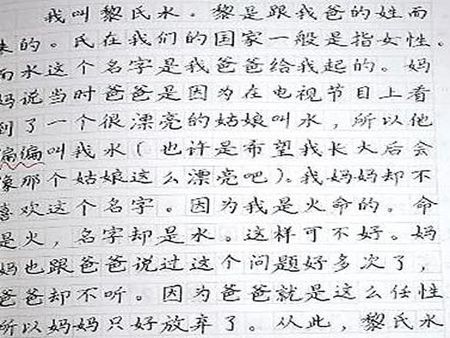 我叫黎氏水．黎是跟我爸的姓而
来的。氏在我们的国家一般是指女性。
而水这个名字是我爸爸给我起的。妈
妈说当时爸爸是因为在电视节目上看
到了一个很漂亮的姑娘叫水，所以他
偏偏叫我水（也许是希望我长大后会
像那个姑娘这么漂亮吧）。我妈妈却不
喜欢这个名字。因为我是火命的。命
是火，名字却是水。这样可不好。妈
妈也跟爸爸说过这个问题好多次了，
爸爸却不听。因为爸爸就是这么任性
所以妈妈只好放弃了。从此，黎氏水